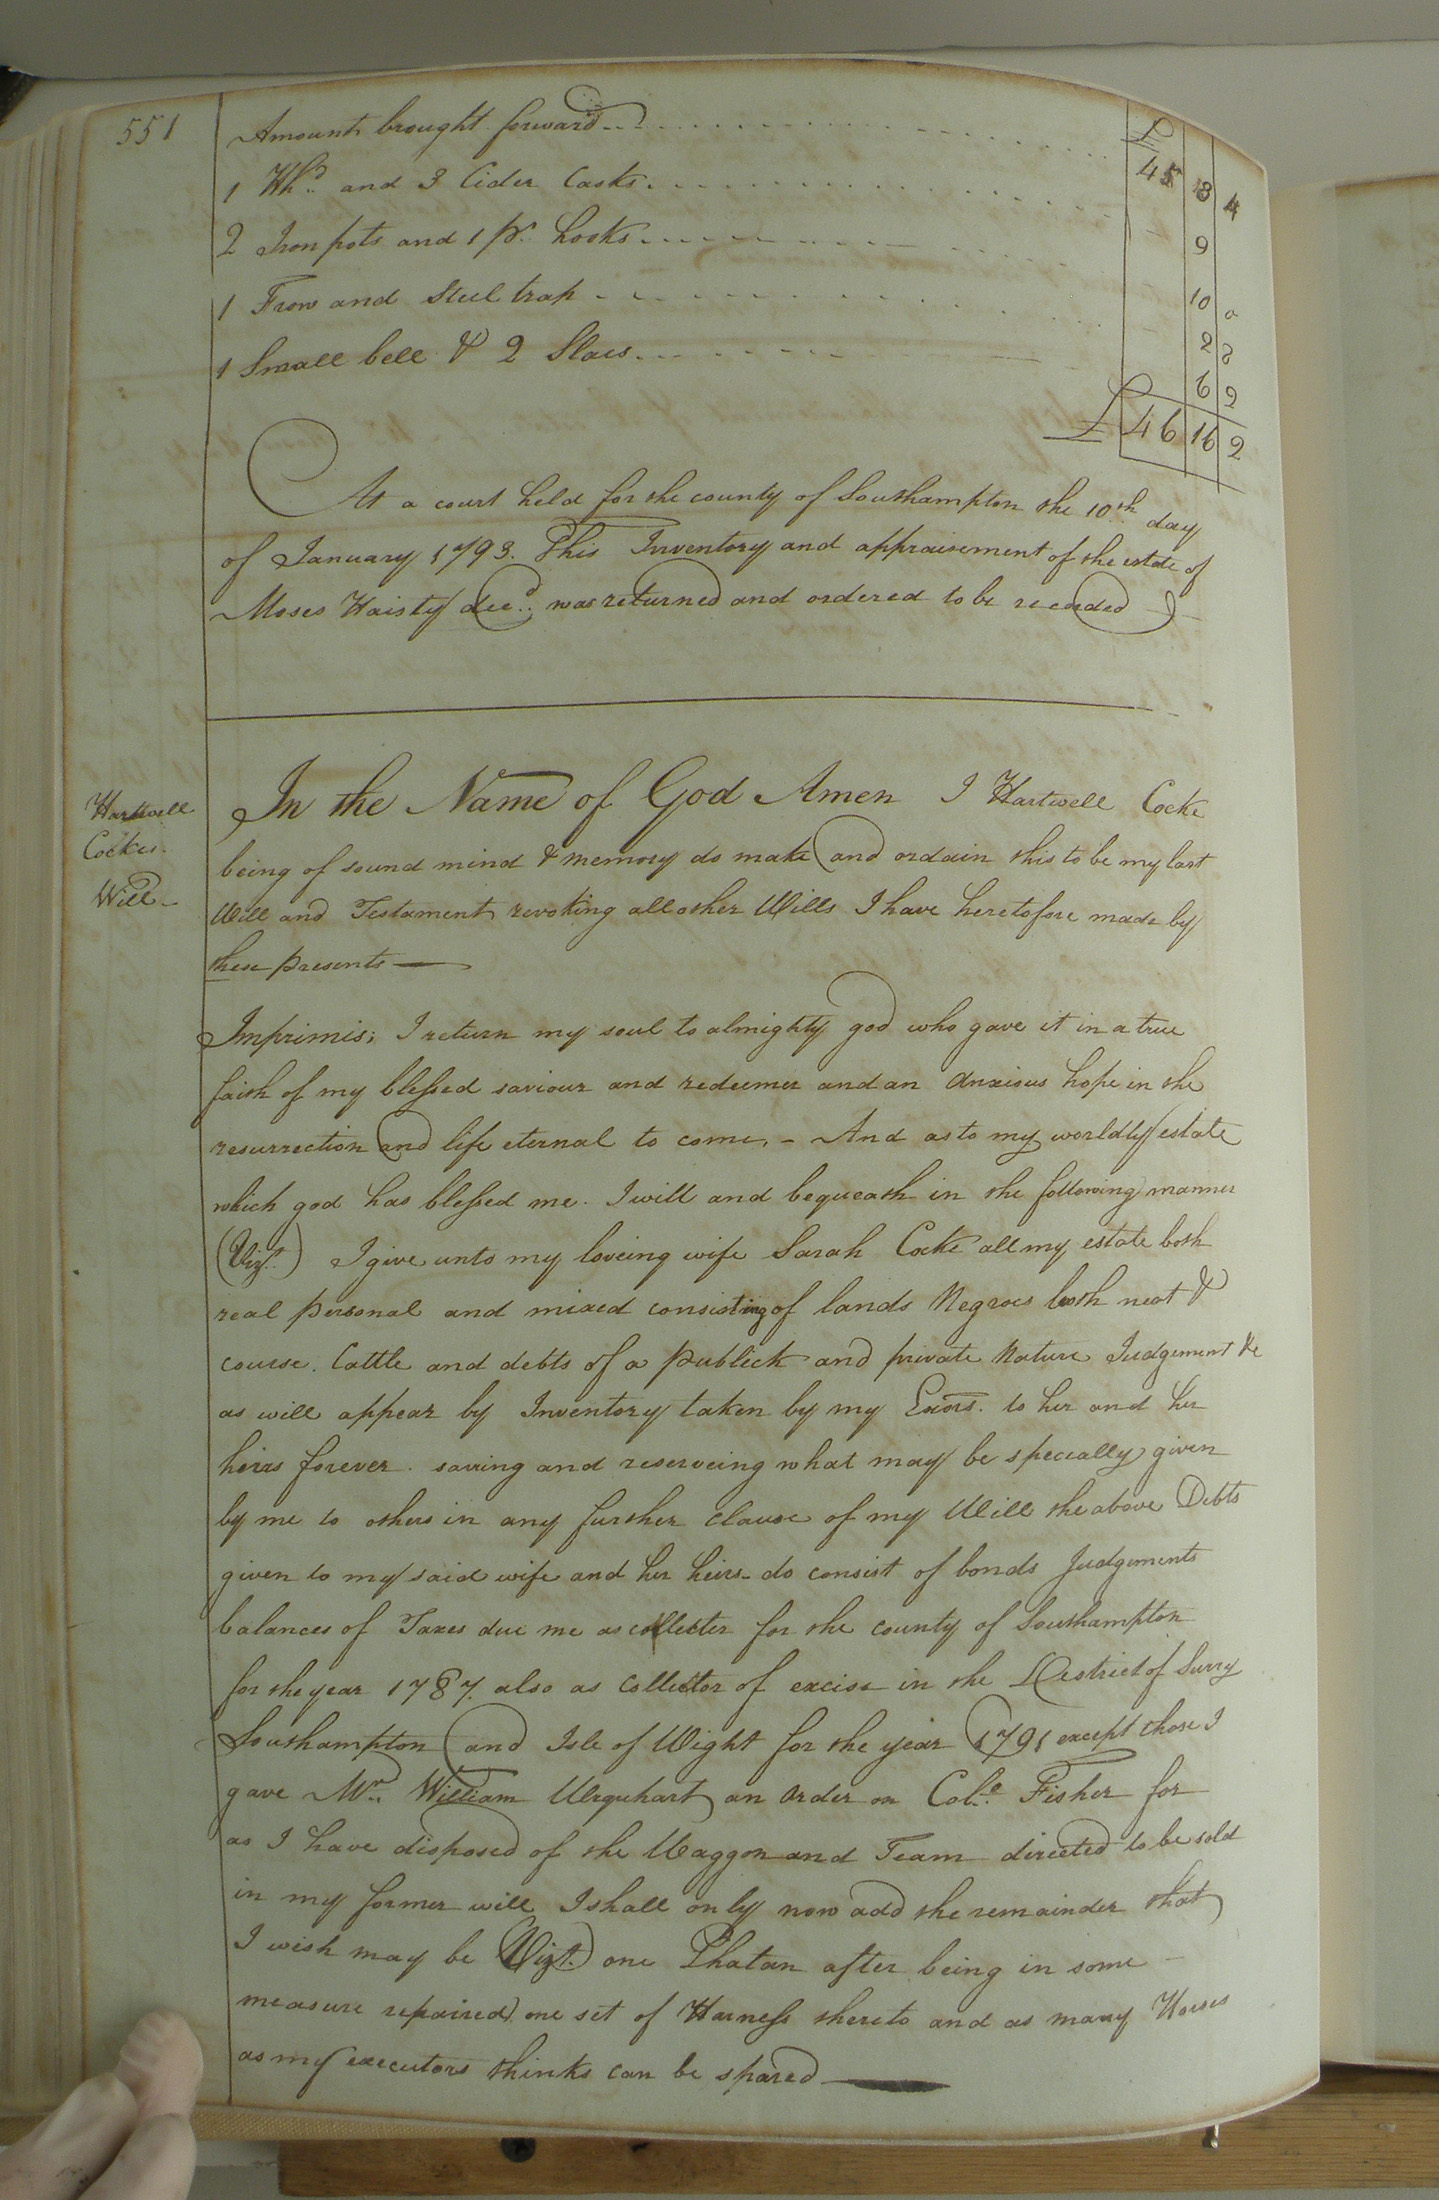 551
Amount brought forward £ 45 8 4
1 Whd. and 3 Cider Casks 9
2 Iron pots and 1 pr. hooks 10 0
1 Frow and Steel trap 2 8
1 Small bell & 2 Slaes 6 2
£ 46 16 2
At a court held for the county of Southampton the 10th day
of January 1793. This Inventory and appraisement of the estate of
Moses Haisty decd. was returned and ordered to be recorded
Hartwell
Cockes
Will
In the Name of God Amen I Hartwell Cocke
being of sound mind & memory do make and ordain this to be my last
Will and Testament revoking all other Wills I have heretofore made by
these presents
Imprimis; I return my soul to almighty god who gave it in a true
faith of my blessed saviour and redeemer and an anxious hope in the
resurrection and life eternal to come, - And as to my worldly estate
which god has blessed me. I will and bequeath in the following manner
(Vizt.) I give unto my loveing wife Sarah Cocke all my estate both
real personal and mixed consisting of lands Negroes both neat &
course. Cattle and debts of a publick and private Nature Judgement &c
as will appear by Inventory taken by my Exors. to her and her
heirs forever. saving and reserveing what may be specially given
by me to others in any further clause of my Will the above Debts
given to my said wife and her heirs do consist of bonds Judgements
balances of Taxes due me as collecter for the county of Southampton
for the year 1787. also as Collector of excise in the District of Surry
Southampton and Isle of Wight for the year 1791 except those I
gave Mr. William Urquhart an order on Colo. Fisher for
as I have disposed of the Waggon and Team directed to be sold
in my former will I shall only now add the remainder that
I wish may be (Vizt.) one Phatan after being in some
measure repaired one set of Harness thereto and as many Horses
as my executors thinks can be spared